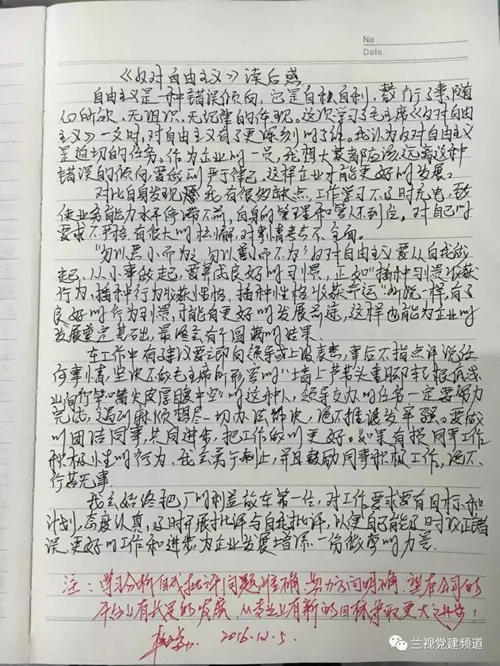 No
Date
《反对自由主义》读后感
自由主义是一种错误倾向,它是自私自利,
所欲、无组织、无纪律的体现。这次学习了毛主席《反对自由
主义》一文时,对自由主义有了更深刻的了解。我认为反对自由主义
是迫切的任务。作为企业的一员,我想大家都应该远离这种
错误的倾向要做到严于律己,这样企业才能更好的发展。
对比自身发现我有很多缺点,工作学习不及时充电,致
使业务能力水平停滞不前,自身的管理和要求不到位,对自己的
要求不严格有很大的松懈,对事情考虑不全面。
"勿以恶小而为之 勿以善小而不为"反对自由主义要从自我做
起,从小事做起,要养成良好的习惯,正如"播种习惯收获
行为,播种行为收获性格,播种性格收获命运"所说一样,有了
良好的行为习惯,才能有更好的发展前途,这样也能为企业的
发展奠定基础,最终会有个圆满的结果。
在工作中有了建议要立即向领导或上级反应,事后不指点评说任
何事情,坚决不做毛主席所形容的"墙上芦苇头重脚轻根底浅
山间竹笋嘴尖皮厚腹中空"的这种人,领导交办的任务一定要努力
完成,遇到麻烦想尽一切办法解决,绝不推诿发牢骚。要做
到团结同事,共同进步,把工作做的更好。如果有损同事工作
积极性的行为,我会勇于制止,并且鼓励同事积极工作,绝不
行若无事。
我会始终把厂的利益放在第一位,对工作要求要有目标和
计划,态度认真,及时开展批评与自我批评,以便自己能及时改正错
误,更好的工作和进步,为企业发展增添一份微薄的力量。
注:学习分析自我批评问题准确,努力方向明确,望在公司的
平台上有长足的发展,从专业上有新的目标争取更大之进步!
2016.10.5.
兰视党建频道